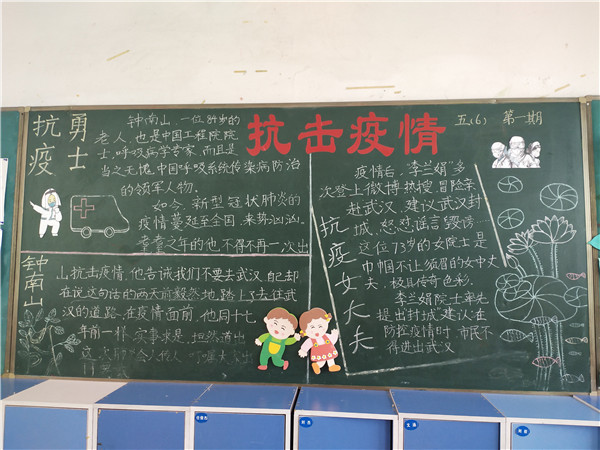 抗击疫情
五(6) 第一期
抗疫
勇士
钟南山,一位84岁的
老人,也是中国工程院院
士,呼吸病学专家,而且是
当之无愧,中国呼吸系统传染病防治
的领军人物.
如今,新型冠状肺炎的
疫情蔓延至全国,来势汹汹,
耄耋之年的他,不得不再一次出
钟南山
山抗击疫情.他告诫我们不要去武汉,自己却
在说这句话的两天前毅然地,踏上了去往武
汉的道路.在疫情面前,他同十七
年前一样,实事求是,坦然道出
抗疫女大夫
疫情后,"李兰娟"多
次登上微博热搜,冒险亲
赴武汉,建议武汉封
城,怒怼谣言毁谤…
这位73岁的女院士是
巾帼不让须眉的女中丈
夫,极具传奇色彩.
李兰娟院士率先
提出封城,建议在
防控疫情时,市民不
得进出武汉